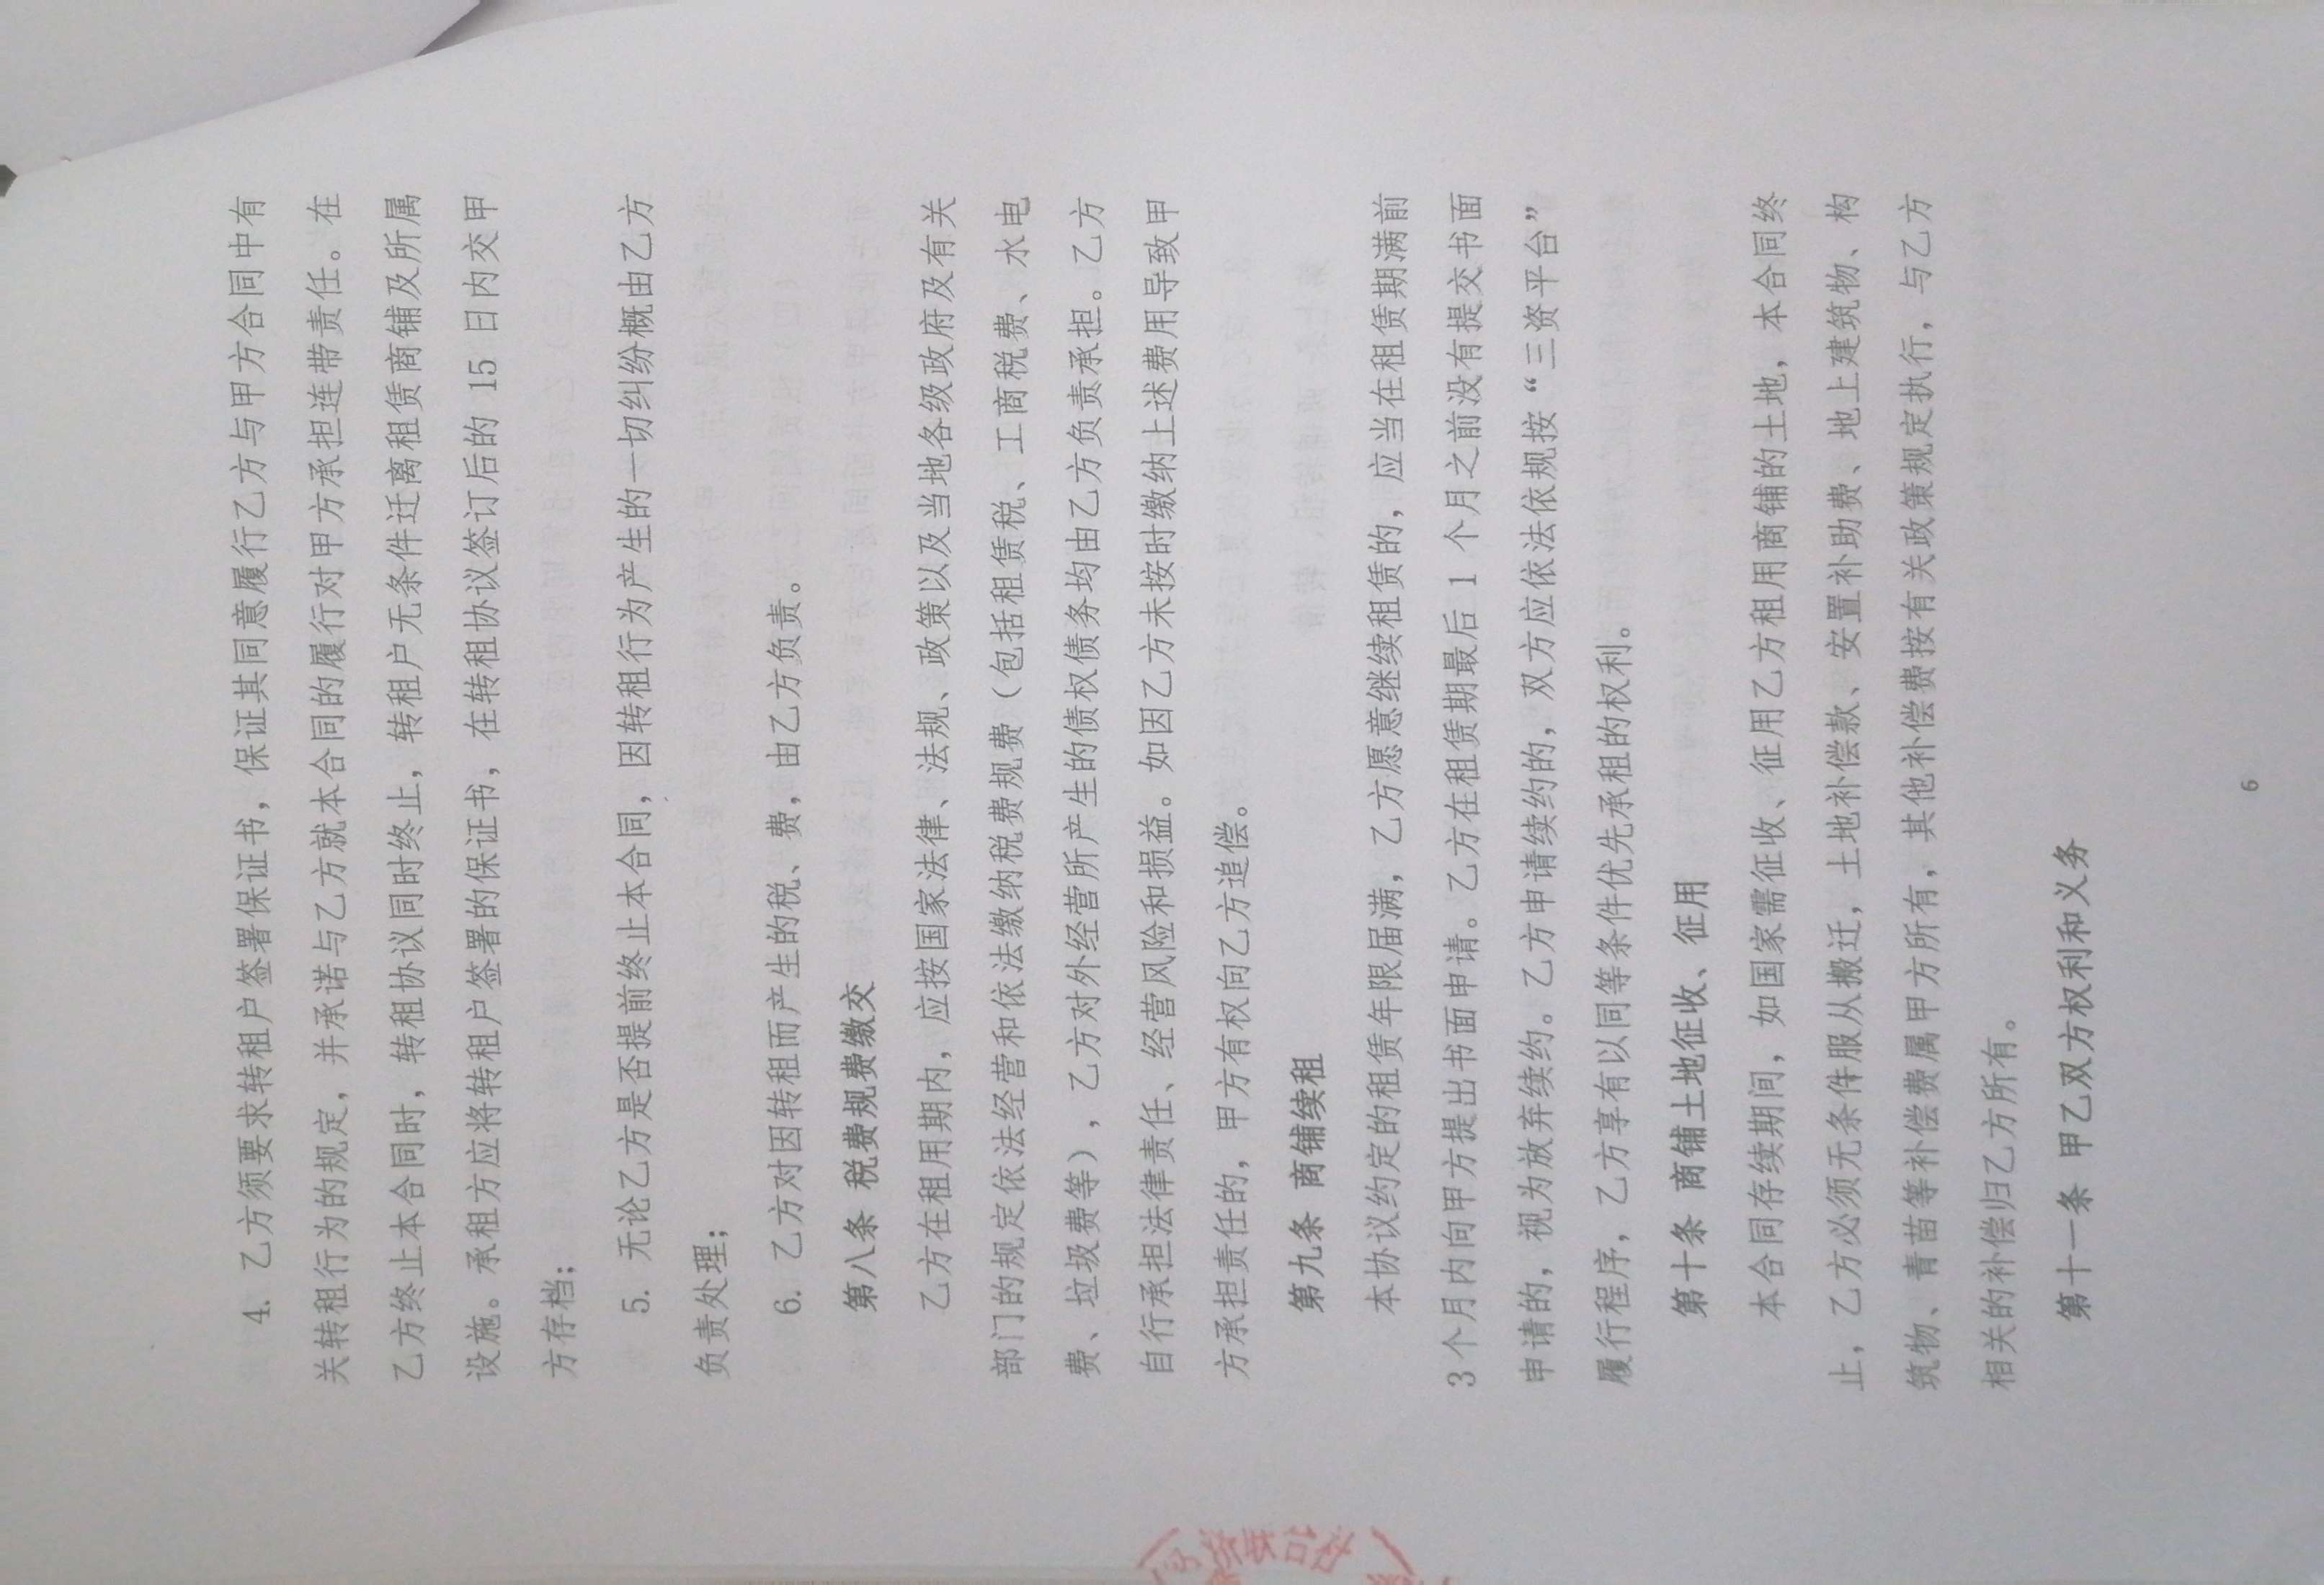 4. 乙方须要求转租户签署保证书，保证其同意履行乙方与甲方合同中有
关转租行为的规定，并承诺与乙方就本合同的履行对甲方承担连带责任。在
乙方终止本合同时，转租协议同时终止，转租户无条件迁离租赁商铺及所属
设施。承租方应将转租户签署的保证书，在转租协议签订后的 15 日内交甲
方存档；
5. 无论乙方是否提前终止本合同，因转租行为产生的一切纠纷概由乙方
负责处理；
6. 乙方对因转租而产生的税、费，由乙方负责。
第八条 税费规费缴交
乙方在租用期内，应按国家法律、法规、政策以及当地各级政府及有关
部门的规定依法经营和依法缴纳税费规费（包括租赁税、工商税费、水电
费、垃圾费等），乙方对外经营所产生的债权债务均由乙方负责承担。乙方
自行承担法律责任、经营风险和损益。如因乙方未按时缴纳上述费用导致甲
方承担责任的，甲方有权向乙方追偿。
第九条 商铺续租
本协议约定的租赁年限届满，乙方愿意继续租赁的，应当在租赁期满前
3 个月内向甲方提出书面申请。乙方在租赁期最后 1 个月之前没有提交书面
申请的，视为放弃续约。乙方申请续约的，双方应依法依规按“三资平台”
履行程序，乙方享有以同等条件优先承租的权利。
第十条 商铺土地征收、征用
本合同存续期间，如国家需征收、征用乙方租用商铺的土地，本合同终
止，乙方必须无条件服从搬迁，土地补偿款、安置补助费、地上建筑物、构
筑物、青苗等补偿费属甲方所有，其他补偿费按有关政策规定执行，与乙方
相关的补偿归乙方所有。
第十一条 甲乙双方权利和义务
6